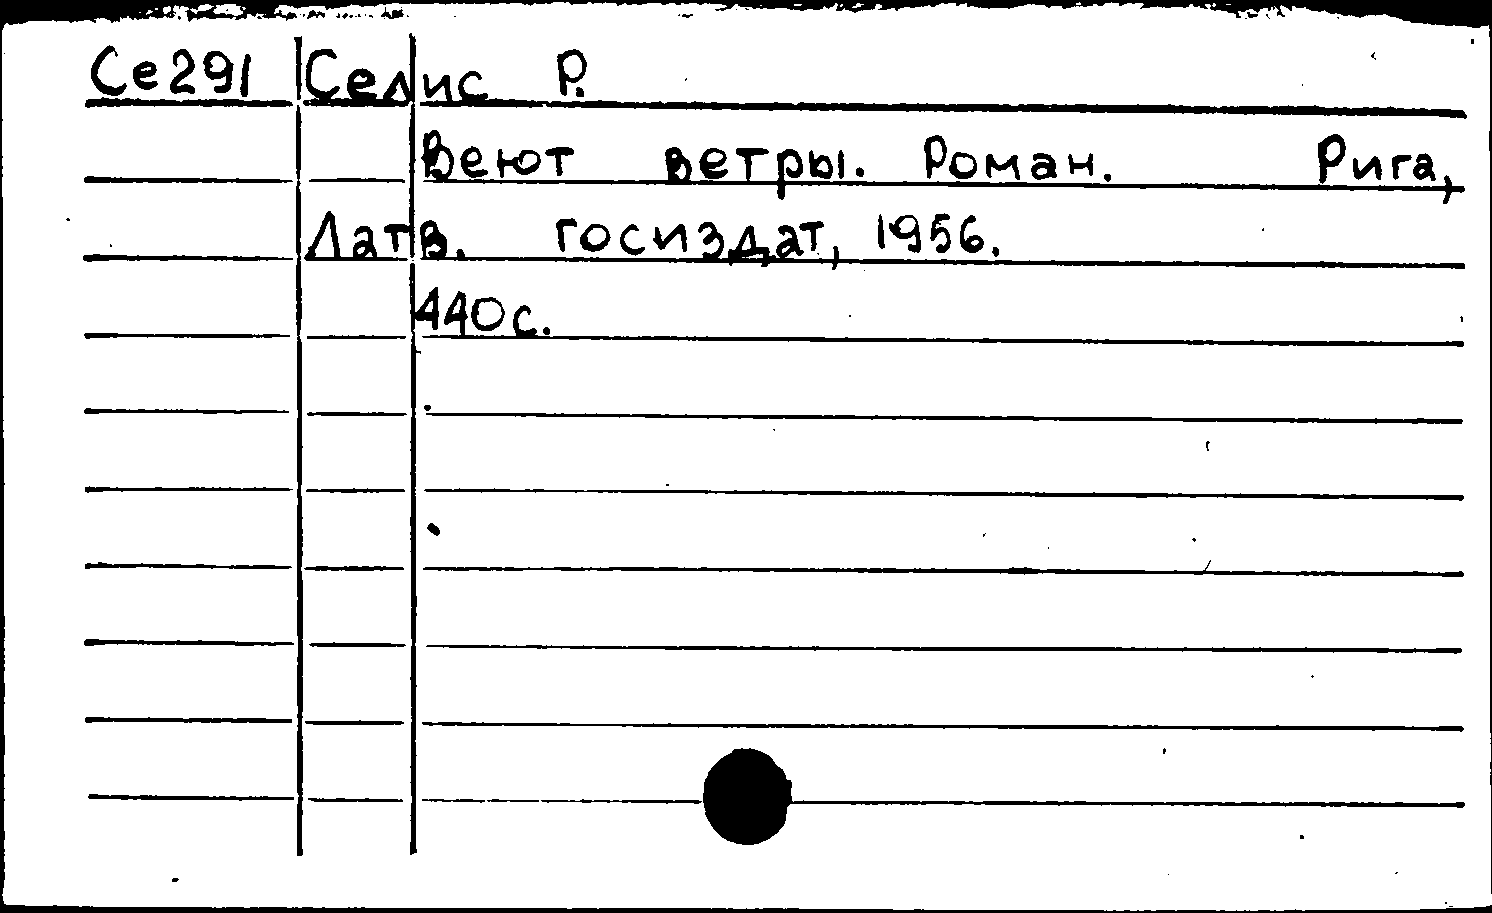 Се291 Селис Р.
Веют ветры. Роман. Рига,
Латв. госиздат, 1956.
440с.